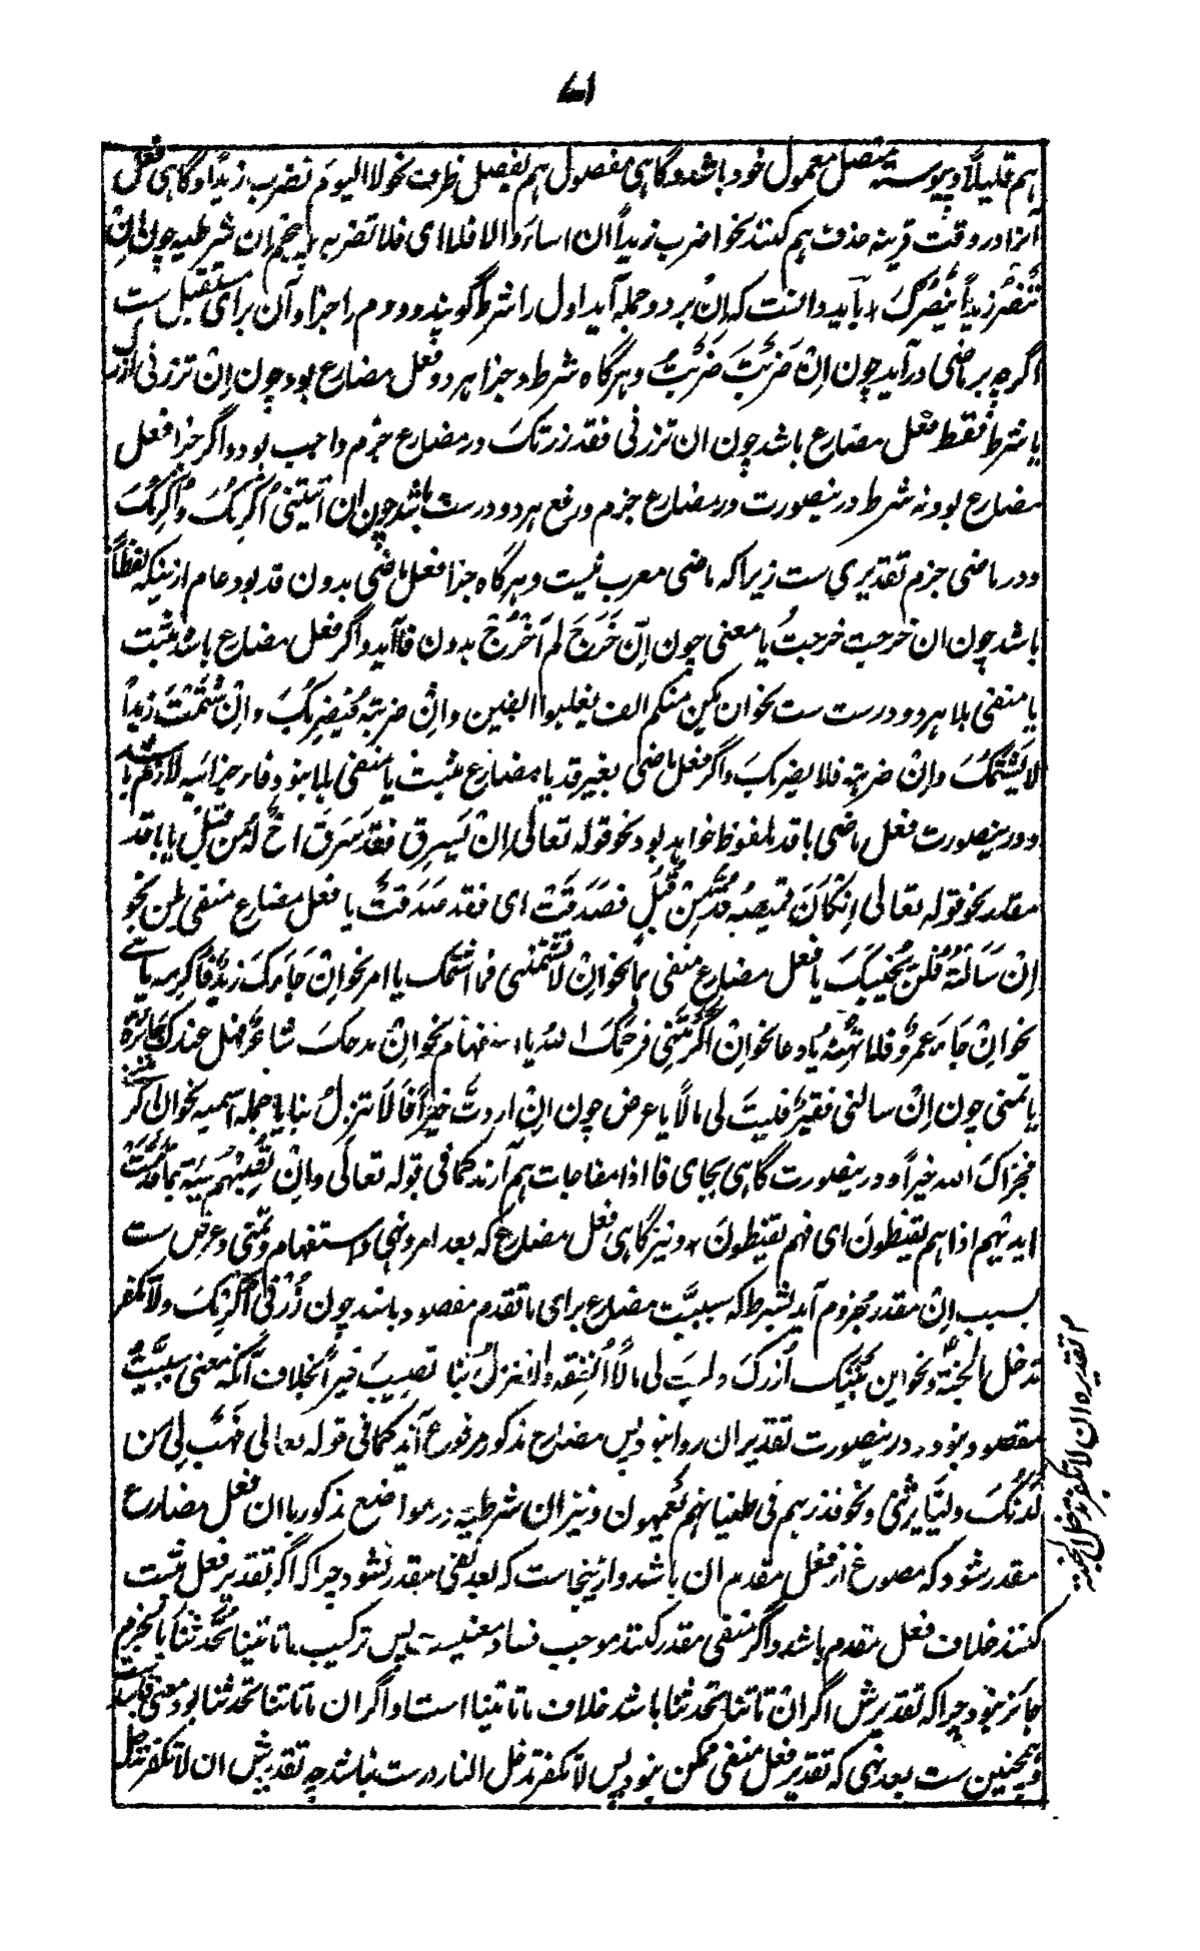 ۷۱
هم قلیلاً و پیوسته متصل معمول خود باشد و گاهی مفصول هم بفصل ظرف نحو لا الیوم تضرب زیداً و گاهی فعل
آنرا در وقت قرینه حذف هم کنند نحو اضرب زیداً ان اساء و الا فلا ای فلا تضربه پنجم ان شرطیه چون اِنْ
تَنْصُرْ زیداً یَنْصُرْکَ باید دانست که اِنْ بر دو جمله آید اول را شرط گویند و دوم را جزا و آن برای مستقبل ست
اگرچه بر ماضی درآید چون اِنْ ضَرَبْتَ ضَرَبْتُ و هرگاه شرط و جزا هر دو فعل مضارع بود چون اِنْ تزرنی ازرک
یا شرط فقط فعل مضارع باشد چون ان تزرنی فقد زرتک در مضارع جزم واجب بود و اگر جزا فعل
مضارع بود نه شرط درینصورت در مضارع جزم و رفع هر دو درست باشد چون ان اتیتنی اُکرمْکَ و اُکرمُکَ
و در ماضی جزم تقدیری ست زیرا که ماضی معرب نیست و هرگاه جزا فعل ماضی بدون قد بود عام ازینکه لفظاً
باشد چون ان خرجت خرجتُ یا معنی چون اِنْ خَرَجَ لم اَخْرُجْ بدون فا آید و اگر فعل مضارع باشد مثبت
یا منفی بلا هر دو درست ست نحو ان یکن منکم الف یغلبوا الفین و اِنْ ضربته فیضربک و اِنْ شَتَمْتَ زیداً
لا یَشْتِمْکَ و اِنْ ضربته فلا یضربکَ و اگر فعل ماضی بغیر قد یا مضارع مثبت یا منفی بلا نبود فاء جزائیه لازم باشد
و درینصورت فعل ماضی با قد ملفوظ خواهد بود نحو قوله تعالی اِنْ یَسرق فقد سَرَقَ اخٌ لهُ من قبلُ یا با قد
مقدر نحو قوله تعالی اِنْ کَانَ قمیصُه قُدَّ مِنْ قُبُلٍ فصَدَقَتْ ای فقد صَدَقَتْ یا فعل مضارع منفی بلن نحو
اِنْ سَاَلتهُ فلن یُجیبَکَ یا فعل مضارع منفی بما نحو اِنْ لَا تَشْتمنی فما اشتمک یا امر نحو اِنْ جَاءکَ زیدٌ فاکرمه یا نهی
نحو اِنْ جَاءَ عمرٌو فلا تُهِنْهُ یا دعا نحو اِنْ اکرَمْتَنِی فرحمکَ الله یا استفهام نحو اِنْ مدحکَ شاعرٌ فهل عندک جائزة
یا تمنی چون اِنْ سالنی فقیرٌ فلیتَ لی مالاً یا عرض چون اِنْ اردتَ خیراً فَاَلَا تنزلُ بنا یا جمله اسمیه نحو ان اکرمتنی
فجزاکَ الله خیراً و درینصورت گاهی بجای فا اذا مفاجات هم آرند کما فی قوله تعالی و اِنْ تُصِبْهُم سَیّئة بِما قَدَّمَتْ
ایدیهم اذا هم یقنطونَ ای فهم یقنطونَ و نیز گاهی فعل مضارع که بعد امر و نهی و استفهام و تمنی و عرض ست
بسبب اِنْ مقدر مجزوم آید بشرطکه سببیّت مضارع برای ما تقدم مقصود باشد چون زُرْنِی اُکرِمْکَ و لا تکفر
تدخل الجنّة و نحو این بَیْتُکَ اَزُرکَ و لیتَ لی مالاً اُنْفِقه و الا تنزل بنا تصیبَ خیراً بخلاف آنکه معنی سببیّت
مقصود نبود درینصورت تقدیر ان روا نبود پس مضارع مذکور مرفوع آید کما فی قوله تعالی فهَبْ لِی مِن
لَدُنْکَ ولیّاً یرثنی و نحو فذرهم فی طغیانهم یَعمهون و نیز ان شرطیه در مواضع مذکوره با آن فعل مضارع
مقدر شود که مصوغ از فعل مقدم ان باشد و ازینجاست که بعد نفی مقدر نشود چرا که اگر تقدیر فعل مثبت
کنند خلاف فعل مقدم باشد و اگر منفی مقدر کنند موجب فساد معنیست پس ترکیب ما تاتینا تُحَدِّثنَا بالجزم
جائز نبود چرا که تقدیرش اگر ان تاتنا تحدثنا باشد خلاف ما تاتینا است و اگر ان ما تاتنا تحدثنا بود معنی فاسد ست
و همچنین ست بعد نهی که تقدیر فعل منفی ممکن نبود پس لا تکفر تدخل النار درست نباشد چه تقدیرش ان لا تکفر تدخل
م تقدیره ان لا تکفر تدخل الجنة